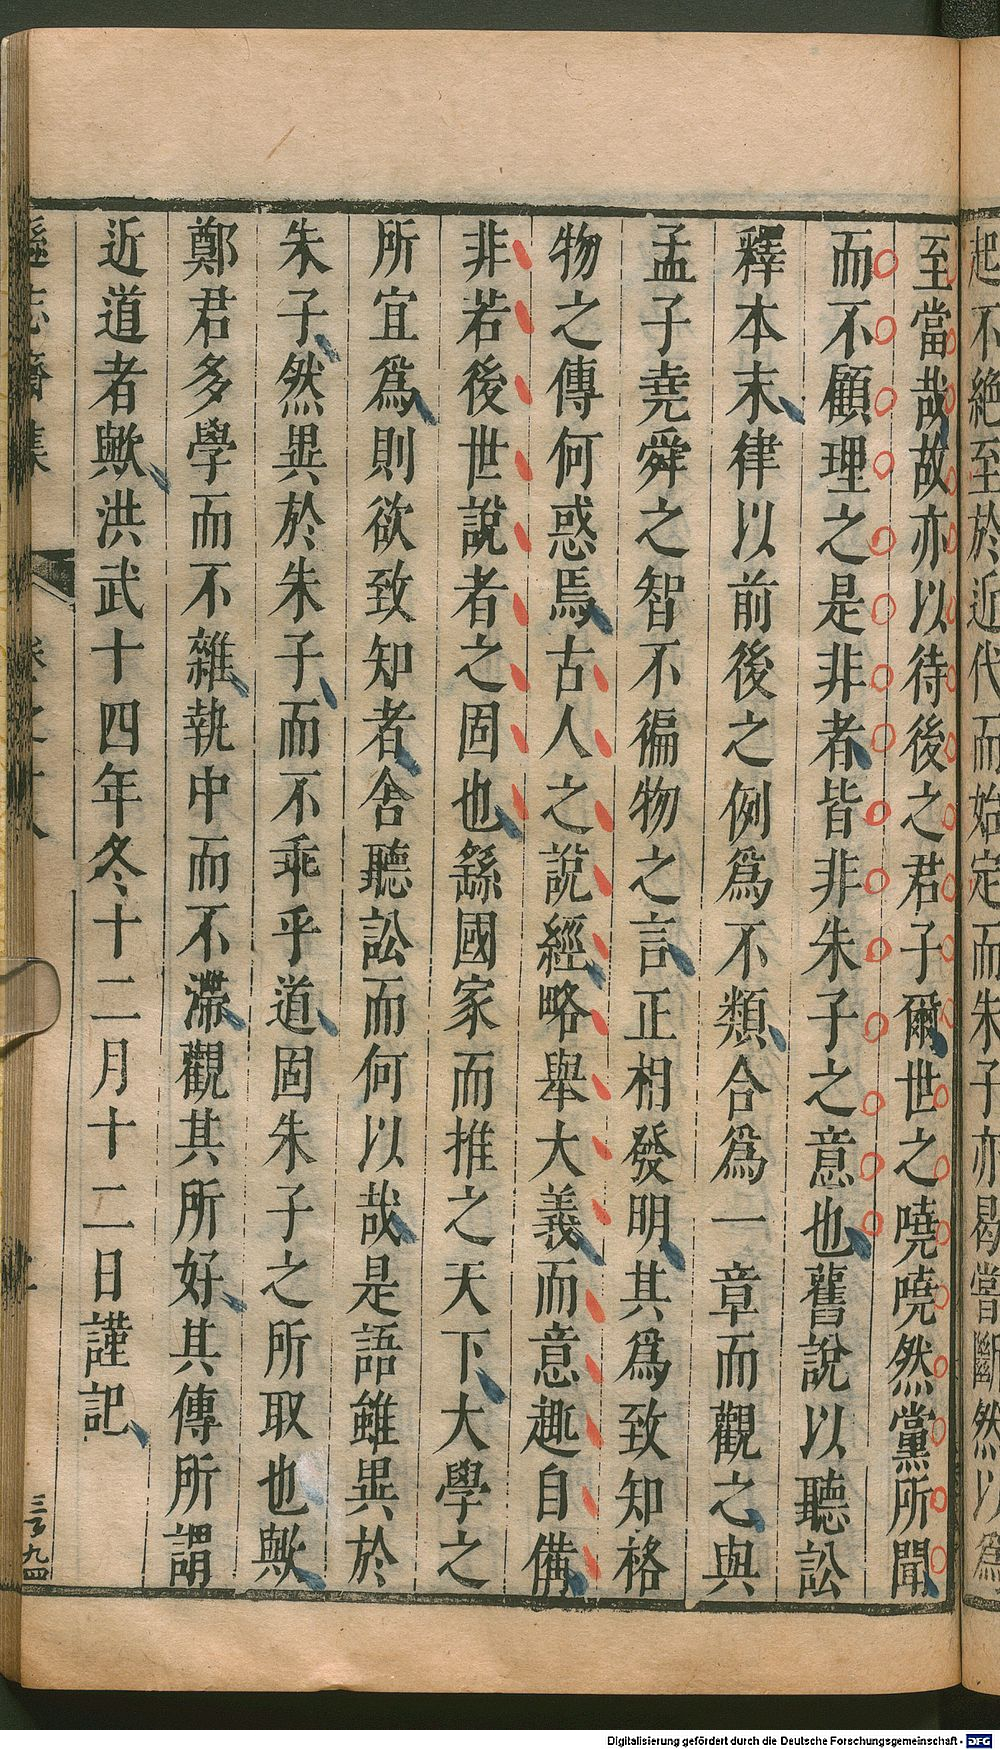 起不絶至於近代而始定而朱子亦曷嘗斷然以爲
至當哉故亦以待後之君子爾世之嘵嘵然黨所聞
而不顧理之是非者皆非朱子之意也舊說以聽訟
釋本末律以前後之例爲不類合爲一章而觀之與
孟子堯舜之智不徧物之言正相發明其爲致知格
物之傳何惑焉古人之說經略舉大義而意趣自備
非若後世說者之固也繇國家而推之天下大學之
所宜爲則欲致知者舍聽訟而何以哉是語雖異於
朱子然異於朱子而不乖乎道固朱子之所取也歟
鄭君多學而不雜執中而不滯觀其所好其傳所謂
近道者歟洪武十四年冬十二月十二日謹記
遜志齋集
卷之十八
Digitalisierung gefördert durch die Deutsche Forschungsgemeinschaft - DFG